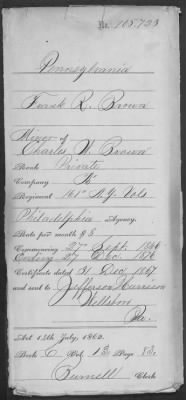 No. 105,723
Pennsylvania
Frank R. Brown
Minor of
Charles W. Brown
Rank Private
Company K
Regiment 161st N.Y. Vols
Philadelphia Agency.
Rate per month $ 8
Commencing 27th Sept. 1866
Ending 27 Dec. 1876
Certificate dated 31 Dec. 1867
and sent to Jefferson Harrison
Wellsboro
Pa.
Act 14th July, 1862.
Book C Vol. 13 Page 83.
Burnell Clerk